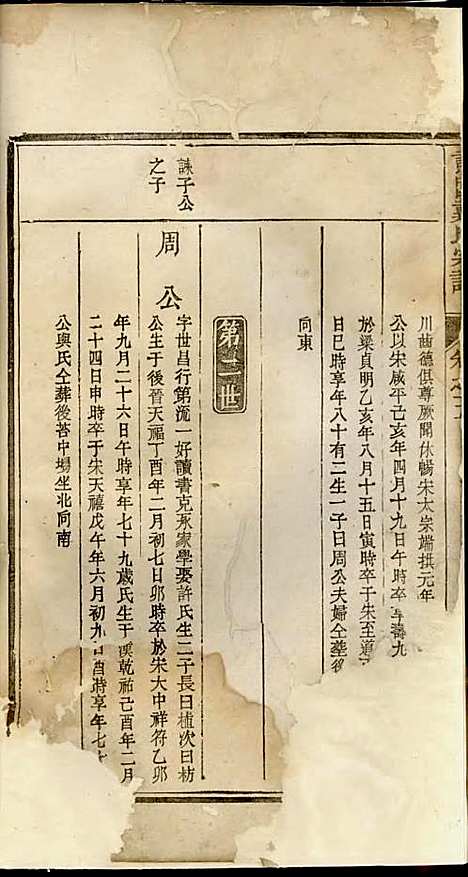 川齒德俱尊厥聞休暢宋太宗端拱元年
公以宋咸平己亥年四月十九日午時卒享壽九
於梁貞明乙亥年八月十五日寅時卒于宋至道
日巳時享年八十有二生一子曰周公夫婦仝塋後
向東
第二世
誅子公
之子
周公
字世昌行第流一好讀書克承家學娶許氏生二子長曰植次曰枋
公生于後晉天福丁酉年二月初七日卯時卒於宋大中祥符乙卯
年九月二十六日午時享年七十九歲氏生于漢乾祐己酉年二月
二十四日申時卒于宋天禧戊午年六月初九日酉時享年七十
公與氏仝葬後苔中場坐北向南